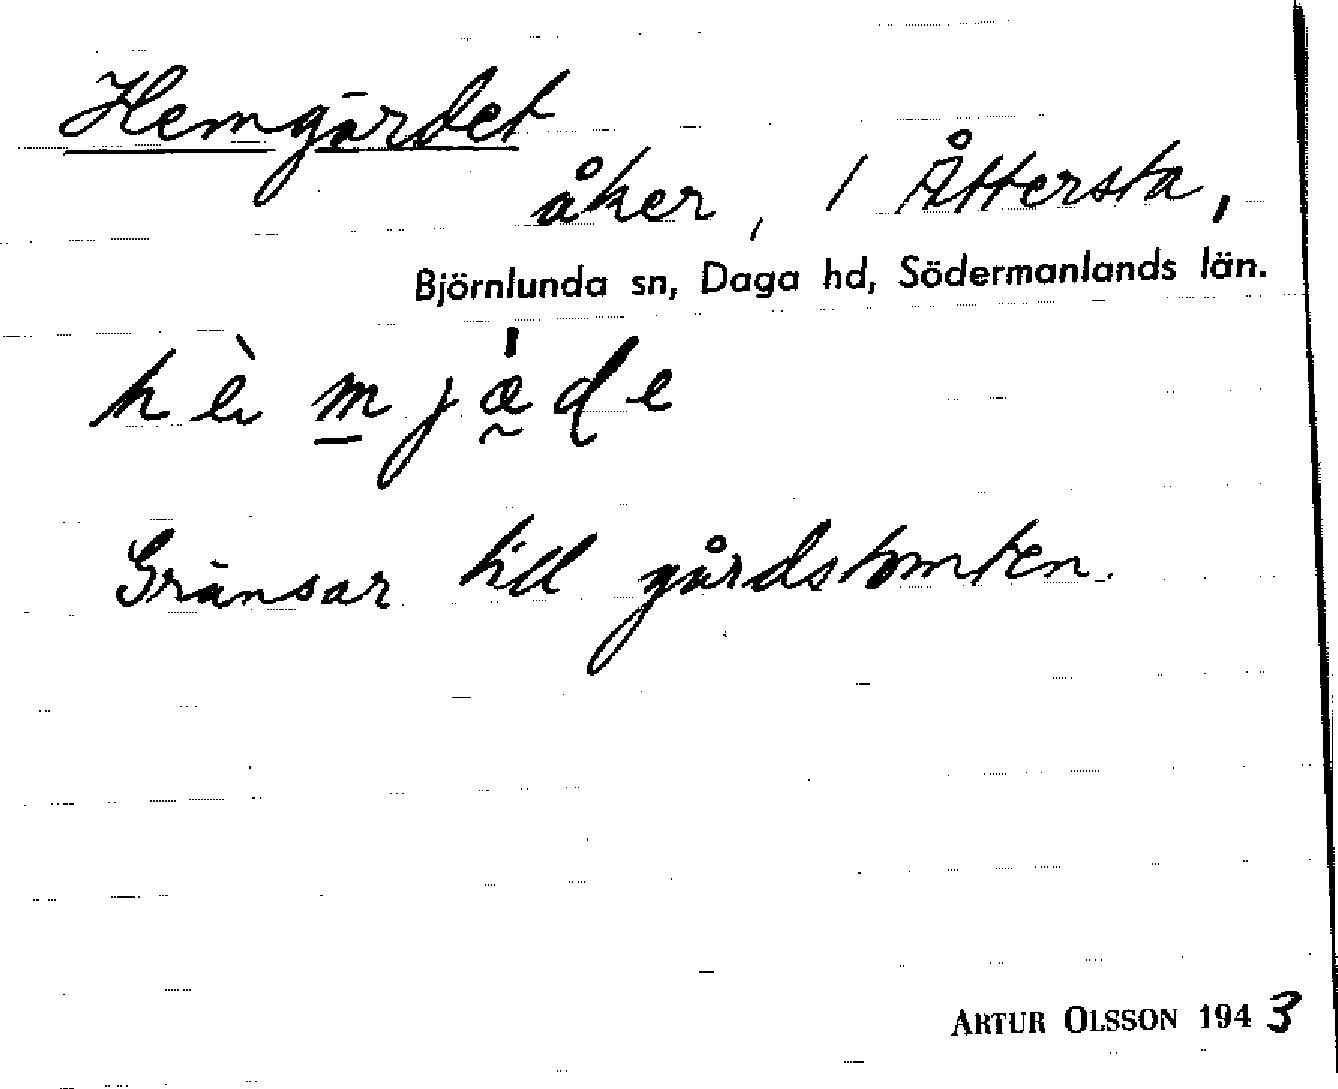 Hemgärdet
åker, i Åttersta,
Björnlunda sn, Daga hd, Södermanlands län.
hèmjǽ̰de
Gränsar till gårdstomten.
ARTUR OLSSON 1943